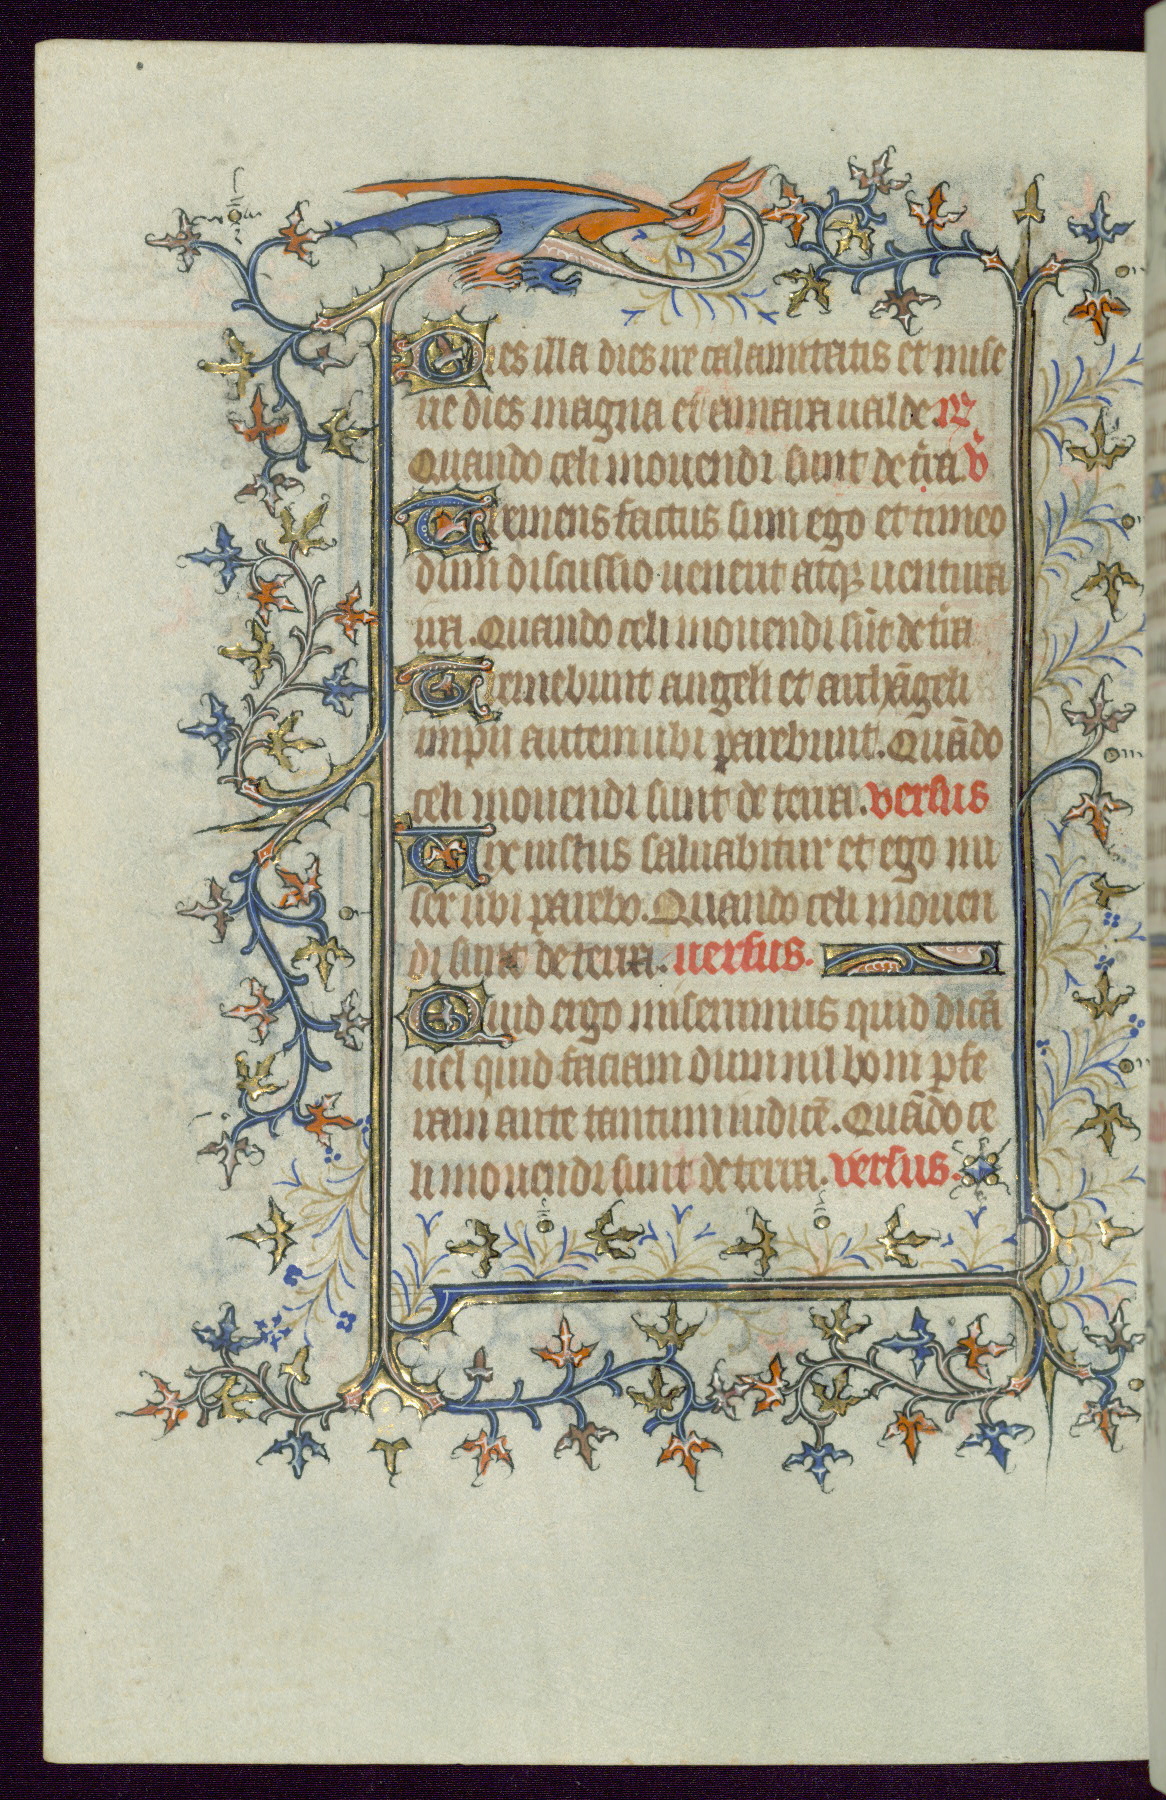 Dies illa dies ire calamitatis et mise
rie dies magna et amara ualde. R̃
Quando celi mouendi sunt de t̃ra. Ṽ
Tremens factus sum ego et timeo
dum discussio uenerit atqꝫ uentura
ira. Quando celi mouendi sũt de t̃ra
Tremebunt angeli et archãgeli
impii autem ubi parebunt. Quãdo
celi mouendi sunt de terra. versus
Vix iustus saluabitur et ego mi
ser ubi parebo. Quando celi mouen
di sunt de terra. uersus.
Quid ergo miserrimus quid dicã
uel quid faciam dum nil boni ꝑfe
ram ante tantum iudicẽ. Quãdo ce
li mouendi sunt de terra. versus.